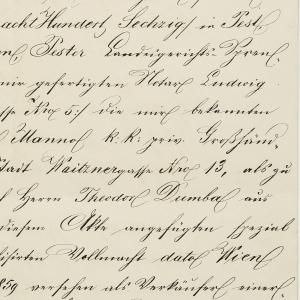 acht Hundert Sechzig / in Pest
en, Pester Landesgerichts-Spren-
mir gefertigten Notar Ludwig
sse Nro 5:/ die mir bekannten
Manno k. k. priv. Großhänd-
Stadt Waitznergasse Nro 13, als zu
Herrn Theodor Dumba aus
diesem Akte angefügten spezial
lisirten Vollmacht dato Wien
859 versehen als Verkäufer einer